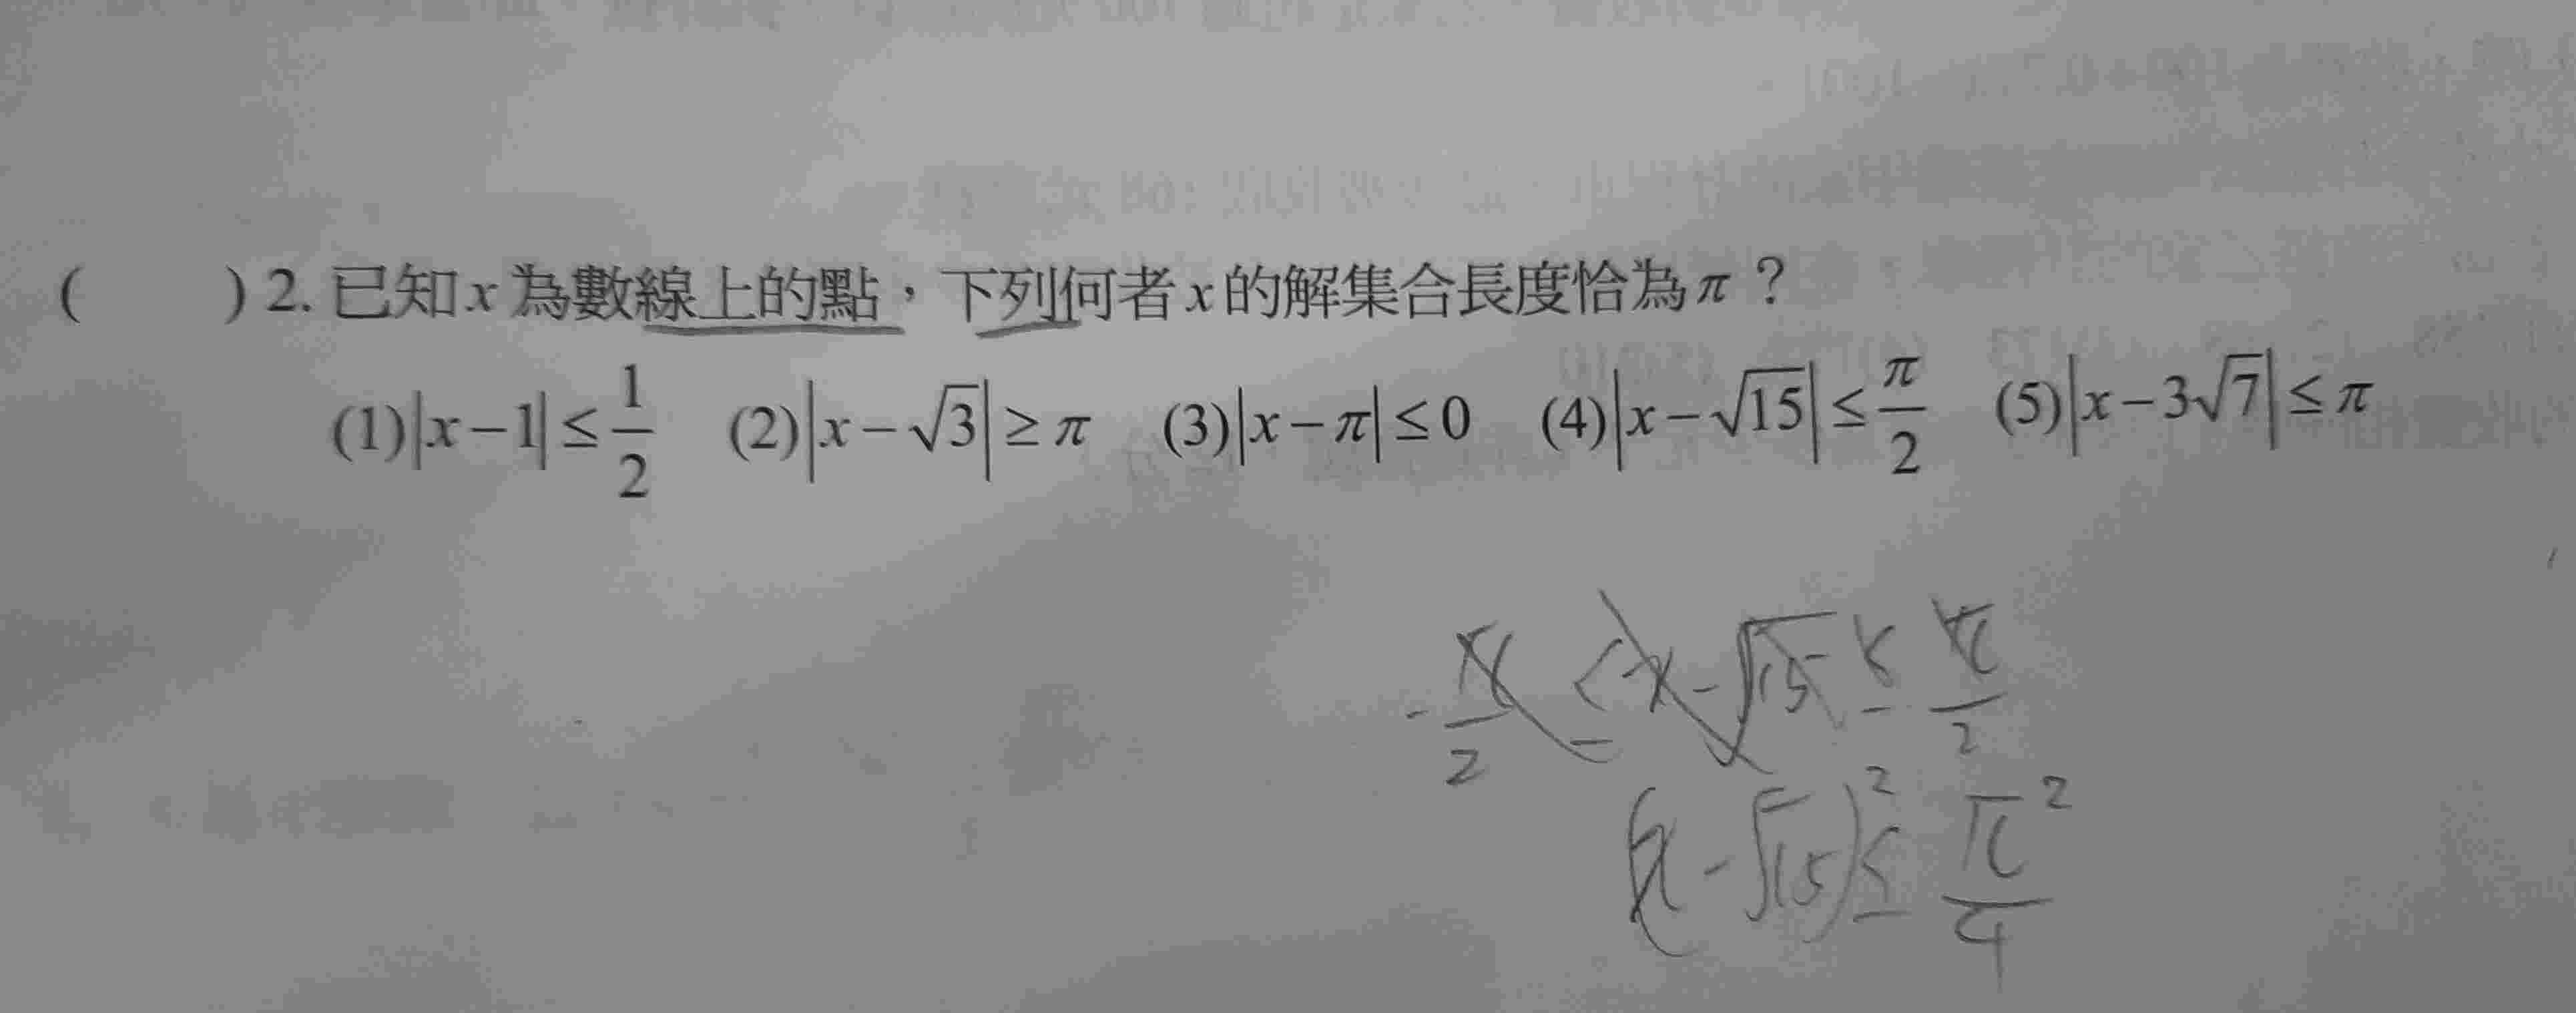 ( ) 2. 已知 x 為數線上的點，下列何者 x 的解集合長度恰為 π？
(1)|x−1|≤1/2 (2)|x−√3|≥π (3)|x−π|≤0 (4)|x−√15|≤π/2 (5)|x−3√7|≤π
-π/2 ≤ x-√15 ≤ π/2
(x-√15)² ≤ π²/4